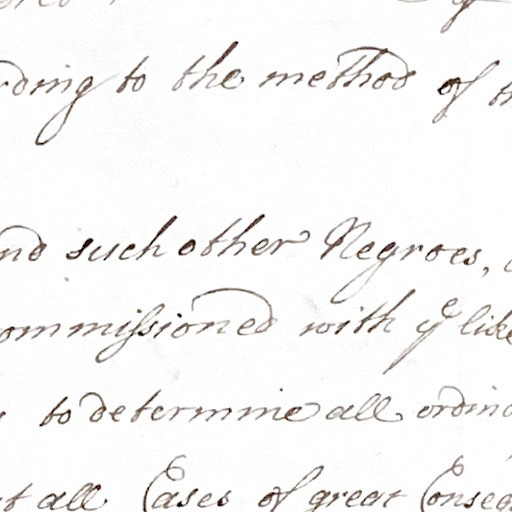 rding to the method of th
nd such other Negroes,
ommissioned with ye like
to determine all ordina
t all Cases of great Conseq